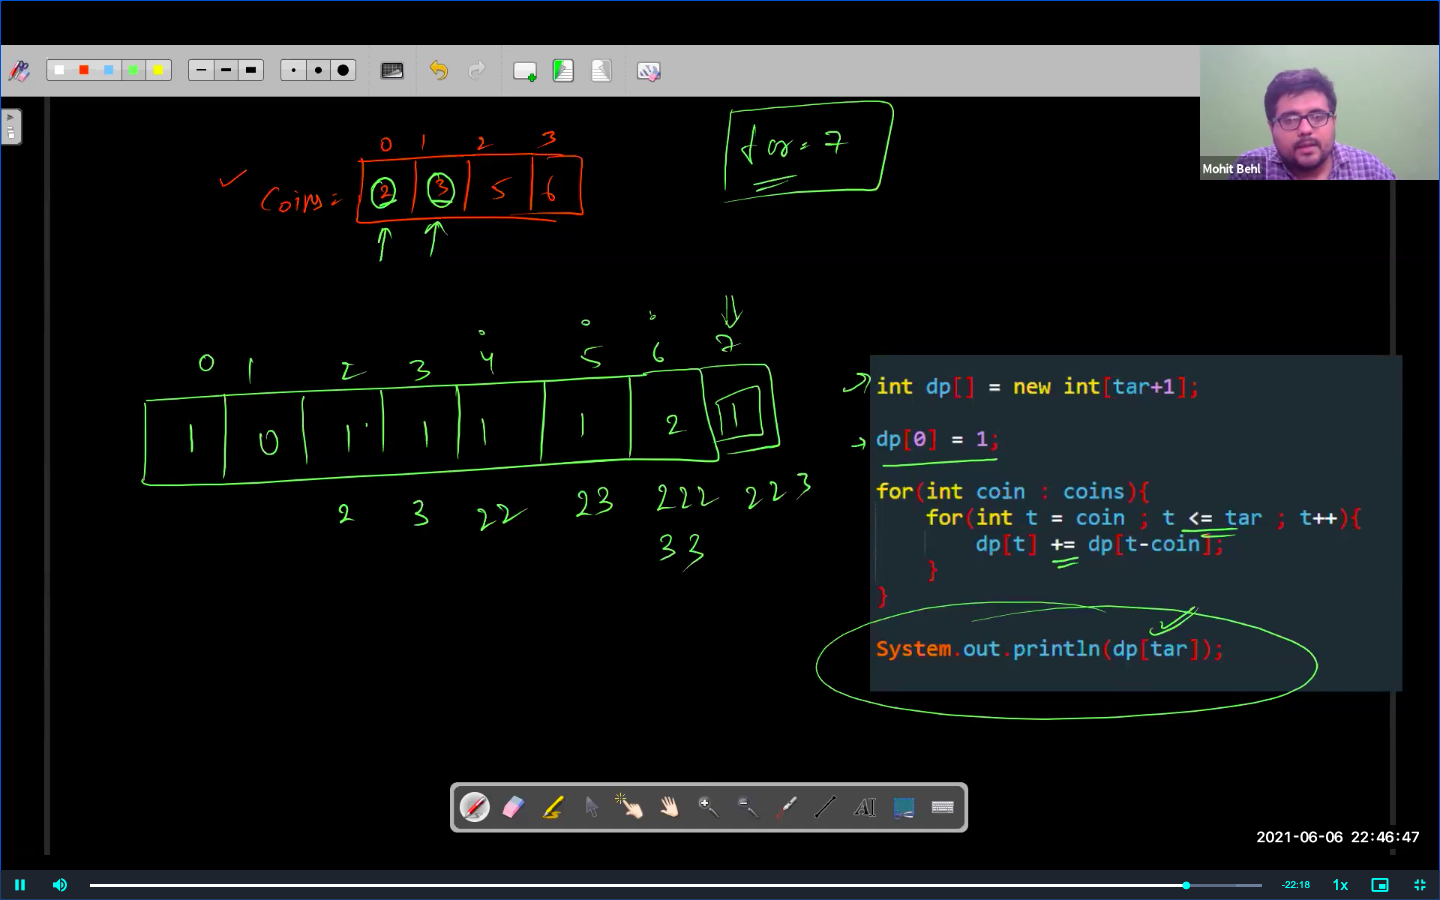 Mohit Behl
0 1 2 3
Coins = 2 3 5 6
tar = 7
0 1 2 3 4 5 6 7
1 0 1 1 1 1 2 1
2 3 22 23 222 223
33
int dp[] = new int[tar+1];
dp[0] = 1;
for(int coin : coins){
for(int t = coin ; t <= tar ; t++){
dp[t] += dp[t-coin];
}
}
System.out.println(dp[tar]);
AI
2021-06-06 22:46:47
-22:18
1x